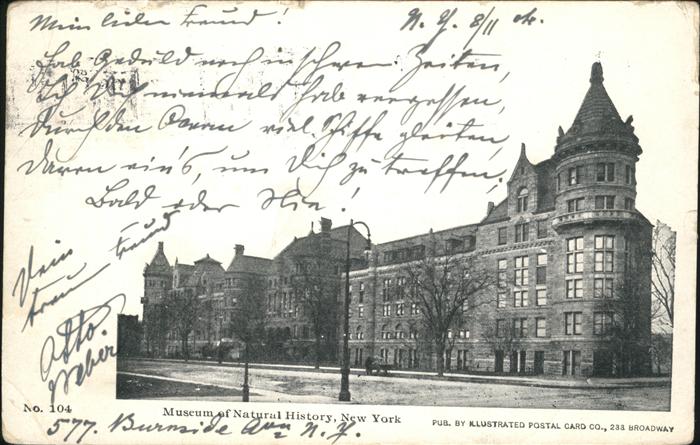 Mein lieber Freund! N.Y. 8/11 04.
Hab Geduld noch in schweren Zeiten,
Ich Dich niemals hab vergessen,
Durch den Ocean viel Schiffe gleiten,
Davon ein's, um Dich zu treffen,
Bald oder Nie!
Dein
treuer Freund
Otto.
Weber
No. 104
Museum of Natural History, New York
PUB. BY ILLUSTRATED POSTAL CARD CO., 233 BROADWAY
577. Burnside Ave N.Y.